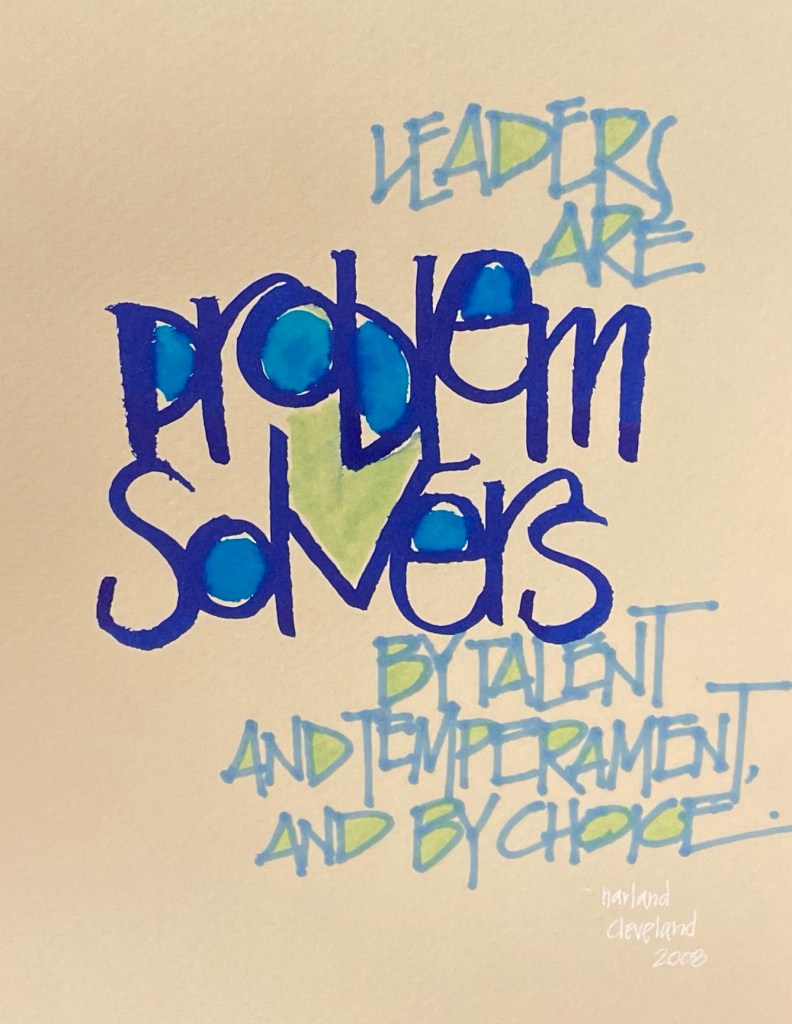 LEADERS
ARE
problem
Solvers
BY TALENT
AND TEMPERAMENT,
AND BY CHOICE.
- harland
cleveland
2008